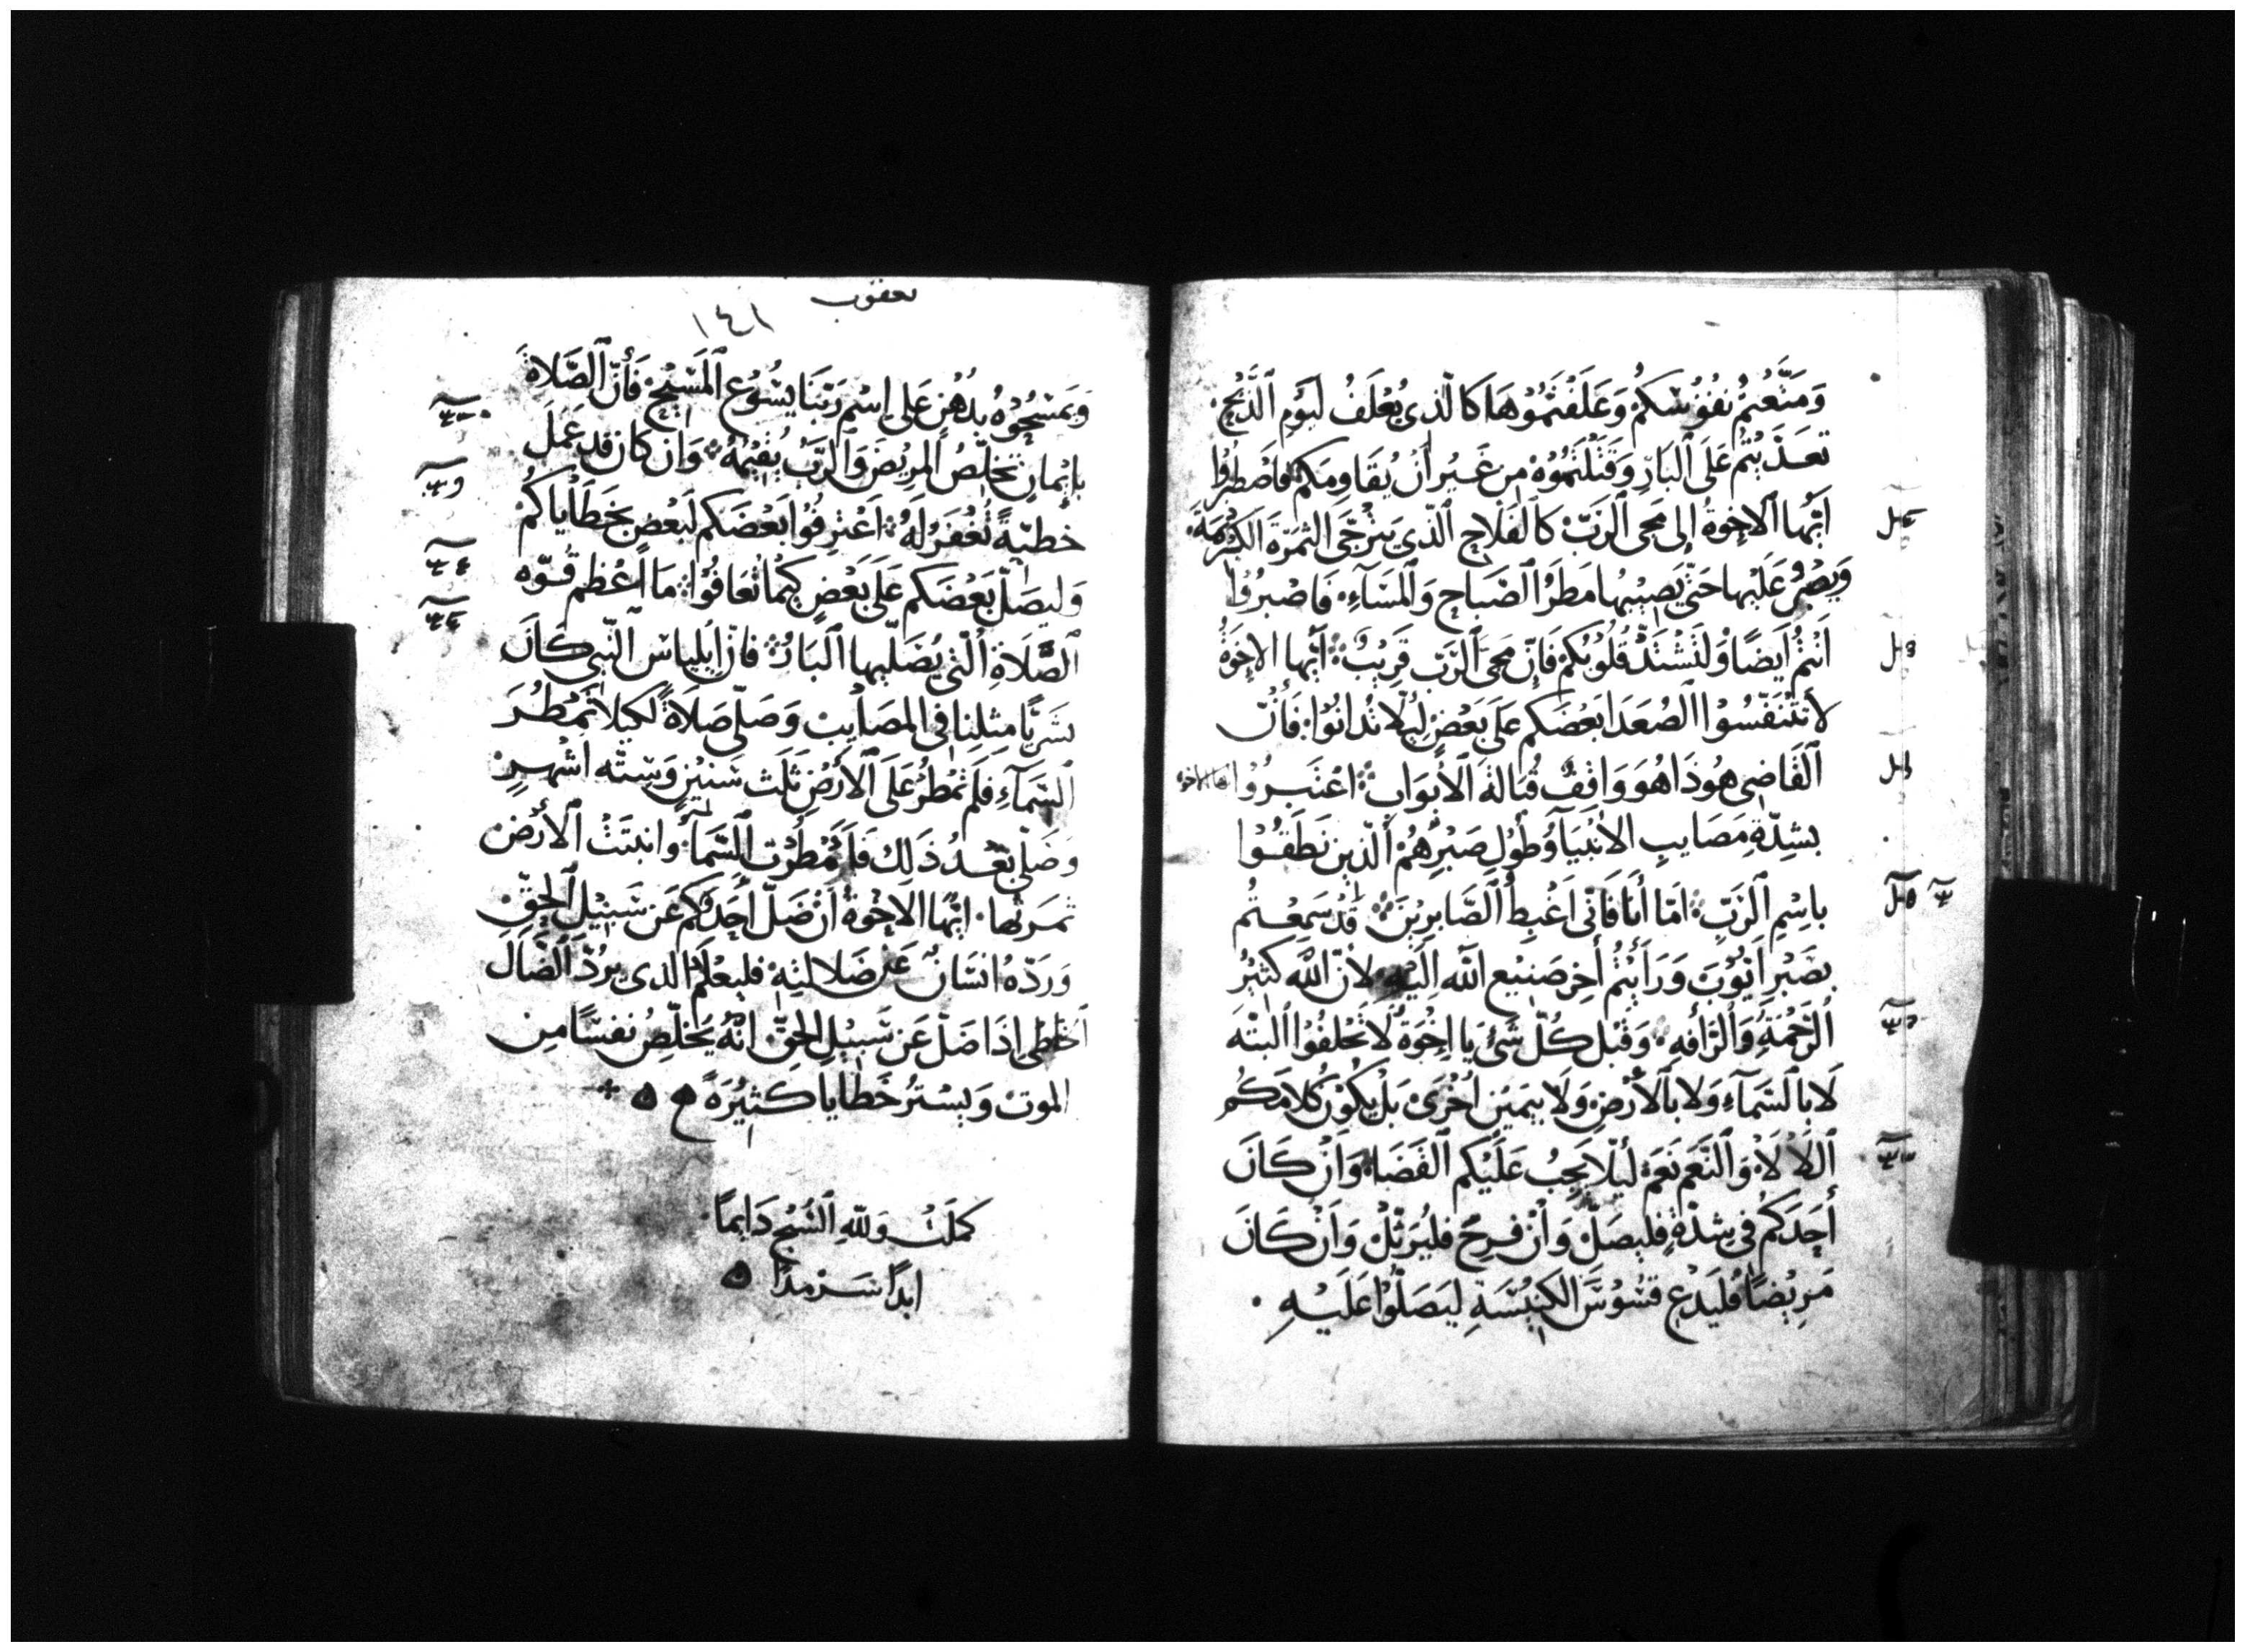 وَمَتَّعْتُمْ نُفُوْسَكُمْ وَعَلَفْتُمُوْهَا كَالَّذِي يُعْلَفُ لِيَوْمِ ٱلذَّبْحِ.
تعَدَّيْتُمْ عَلَى ٱلبَارِّ وَقَتَلْتُمُوْهُ مِن غَيْرِ أَنْ يُقَاوِمَكُم فَاصْطَبِرُوا
اَيُّهَا ٱلاِخْوَةُ إلى مَجِي ٱلرَّبّ كَالفَلَّاحِ ٱلَّذِي يَتَرَجَّى الثمَرَةَ الكَرِيْمَةَ.
وَيَصْبِرُ عَلَيْهَا حَتّى يُصِيْبُهَا مَطَرُ ٱلصَبَاحِ وَٱلمَسَآءِ. فَاصْبِرُوْا
اَنتُمْ اَيضًا وَلتَشْتَدّ قُلُوْبُكُمْ فَاِنّ مَجِيَ ٱلرَّبّ قَرِيْبٌ ۞ اَيُّهَا الاِخوَةُ
لَا تَتَنَفّسُوْا ٱلصُعَدَا بَعْضَكُم عَلَى بَعْضٍ لِيَلا تُدَانُوْا. فَاِنّ
ٱلقَاضِي هُوَذَا هُوَ وَاقفٌ قُبَالَةَ ٱلأَبوَابِ ۞ اعْتَبِرُوْا ايها الاخوه
بشِدّةِ مَصَايبِ الاَنبيَآ وَطُوْلِ صَبْرِهُمْ ٱلَّذِين نَطَقُوْا
باسْمِ ٱلرَّبّ ۞ امّا أَنَا فَاِنّى اَغْبِطُ ٱلصَّابِرِيْنَ ۞ قَدْ سَمِعْتُم
بصَبْرِ اَيُّوْبَ وَرَأَيْتُمْ أَخِر صَنِيْع ٱللّه اِلَيْهِ. لأنّ ٱللّه كثيْرُ
ٱلرَّحْمَةِ وَٱلرَّأفَةِ ۞ وَقَبْل كُلّ شَىْ يَا اِخْوَةُ لَا تَحْلفُوْا البتْة
لَا بِالسَّمآءِ وَلا بِٱلأَرْضِ وَلَا بِيَمِيْنٍ اُخْرَىْ بَلْ يَكُوْن كَلَامَكُم
ٱللَا لَاْ وَٱلنَّعَم نَعَمْ لَيلّا يَجِبُ عَلَيْكم ٱلقَضَا. وَاَنْ كَانَ
أَحَدَكُم فى شِدّةٍ فليصَلّ وَاَنْ فَرِحَ فليُرَتِّلْ وَاَنْ كَانَ
مَرِيْضًا فَليَدْعِ قسُوْسَ ٱلكَنِيْسَةِ ليَصَلّوْا عَلَيْهِ.
يعقوب
١٤١
وَيمسَحُوْهُ بِدُهْنٍ عَلى اِسْمِ رَبّنَا يسُوْع ٱلمَسِيْحِ فَأَنّ ٱلصَّلاةَ
بإيْمانٍ تخلّصُ ٱلمرِيْضَ وَٱلرَّبُّ يُقيْمُهُ ۞ وَان كَان قد عَمَلَ
خطيّةً تُغْفَرُ لَهُ ۞ اَعْترِفُوْا بَعْضَكم لبَعْضٍ بخَطَايَاكُمْ
وَليصَلّ بَعْضَكم عَلَى بَعْضٍ كيمَا تُعَافُوْا ۞ مَا اَعْظم قُوّه
ٱلصَّلَاةِ ٱلّتى يُصَلّيهَا ٱلبَارُ ۞ فانّ اِيليَاس ٱلنّبى كَانَ
بشَرِيًّا مِثلنا فى المصَايِبْ وَصَلّى صَلَاةً لكيلَا تمْطُرَ
ٱلسَّمَآءِ فَلَم تُمْطِرْ عَلَى ٱلأرْضِ ثَلَث سَنيْنٍ وَسِتّه اشْهُرٍ
وَصَلّى بَعْدُ ذَلِكَ فَأَمْطَرْت ٱلسَّمَآ وانبَتَتْ ٱلأَرْض
ثمَرتُها. ايُّها الاخْوةُ أَنْ ضَلّ أَحَدَكُم عَن سَبِيْلِ ٱلحَقّ
وَرَدّهُ انسَانٌ عَن ضَلالَتِهِ فليعْلَم الذى يرُدّ ٱلضّال
ٱلخَاطى اذَا ضَلّ عَن سَبيْلِ الحَقّ انّهُ يَخلّصُ نفسًا مِن
الموتْ وَيسْترُ خَطَايا كثيْرَةً
كملَتْ وَللّهِ ٱلسُبْحُ دَايمًا.
ابدًا سَرْمدًا